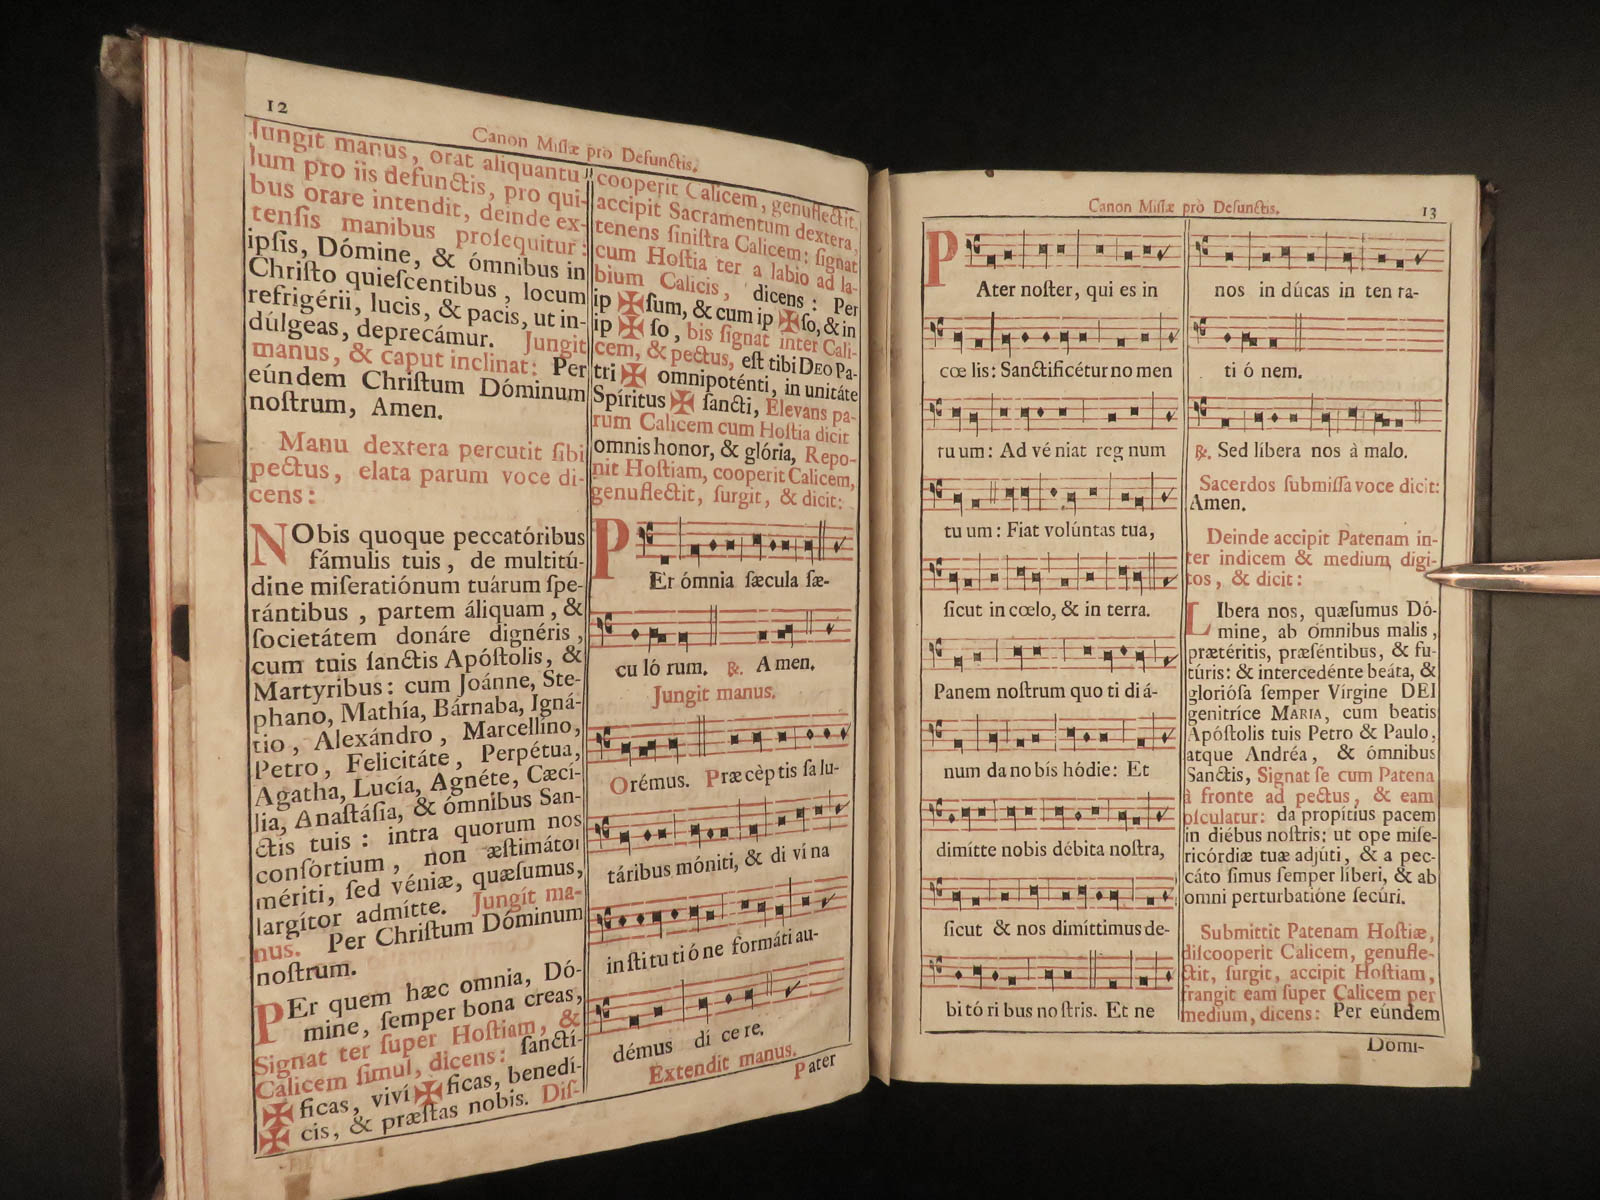 12
Canon Miſſæ pro Defunctis.
Jungit manus, orat aliquantu-
lum pro iis defunctis, pro qui-
bus orare intendit, deinde ex-
tenſis manibus proſequitur:
ipſis, Dómine, & ómnibus in
Chriſto quieſcentibus, locum
refrigérii, lucis, & pacis, ut in-
dúlgeas, deprecámur. Jungit
manus, & caput inclinat: Per
eúndem Chriſtum Dóminum
noſtrum, Amen.
Manu dextera percutit ſibi
pectus, elata parum voce di-
cens:
NObis quoque peccatóribus
fámulis tuis, de multitú-
dine miſeratiónum tuárum ſpe-
rántibus, partem áliquam, &
ſocietátem donáre dignéris,
cum tuis ſanctis Apóſtolis, &
Martyribus: cum Joánne, Ste-
phano, Mathía, Bárnaba, Igná-
tio, Alexándro, Marcellíno,
Petro, Felicitáte, Perpétua,
Agatha, Lucía, Agnéte, Cæcí-
lia, Anaſtáſia, & ómnibus San-
ctis tuis: intra quorum nos
conſórtium, non æſtimátor
mériti, ſed véniæ, quæſumus,
largítor admítte. Jungit ma-
nus. Per Chriſtum Dóminum
noſtrum.
PEr quem hæc omnia, Dó-
mine, ſemper bona creas,
Signat ter ſuper Hoſtiam, &
Calicem ſimul, dicens: ſanctí-
✠ ficas, viví ✠ ficas, benedí-
✠ cis, & præſtas nobis. Diſ-
cooperit Calicem, genuflectit,
accipit Sacramentum dextera,
tenens ſiniſtra Calicem: ſignat
cum Hoſtia ter a labio ad la-
bium Calicis, dicens: Per
ip ✠ ſum, & cum ip ✠ ſo, & in
ip ✠ ſo, bis ſignat inter Cali-
cem, & pectus, eſt tibi DEO Pa-
tri ✠ omnipoténti, in unitáte
Spíritus ✠ ſancti, Elevans pa-
rum Calicem cum Hoſtia dicit
omnis honor, & glória, Repo-
nit Hoſtiam, cooperit Calicem,
genuflectit, ſurgit, & dicit:
PEr ómnia ſæcula ſæ-
cu ló rum. ℟. A men.
Jungit manus.
Orémus. Præcèp tis ſa lu-
táribus móniti, & di ví na
inſti tu ti ó ne formáti au-
démus dí ce re.
Extendit manus.
Pater
Canon Miſſæ prò Defunctis.
13
PAter noſter, qui es in
cœ lis: Sanctificétur no men
tu um: Ad vé niat reg num
tu um: Fiat volúntas tua,
ſicut in cœlo, & in terra.
Panem noſtrum quo ti di á-
num da no bís hódie: Et
dimítte nobis débita noſtra,
ſicut & nos dimíttimus de-
bi tó ri bus no ſtris. Et ne
nos in dúcas in ten ra-
ti ó nem.
℟. Sed líbera nos à malo.
Sacerdos ſubmiſſa voce dicit:
Amen.
Deinde accipit Patenam in-
ter indicem & medium digi-
tos, & dicit:
LIbera nos, quæſumus Dó-
mine, ab omnibus malis,
prætéritis, præſéntibus, & fu-
túris: & intercedénte beáta, &
glorióſa ſemper Vírgine DEI
genitríce MARIA, cum beatis
Apóſtolis tuis Petro & Paulo,
atque Andréa, & ómnibus
Sanctis, Signat ſe cum Patena
à fronte ad pectus, & eam
oſculatur: da propítius pacem
in diébus noſtris: ut ope miſe-
ricórdiæ tuæ adjúti, & a pec-
cáto ſimus ſemper líberi, & ab
omni perturbatióne ſecúri.
Submittit Patenam Hoſtiæ,
diſcooperit Calicem, genufle-
ctit, ſurgit, accipit Hoſtiam,
frangit eam ſuper Calicem per
medium, dicens: Per eúndem
Domi-